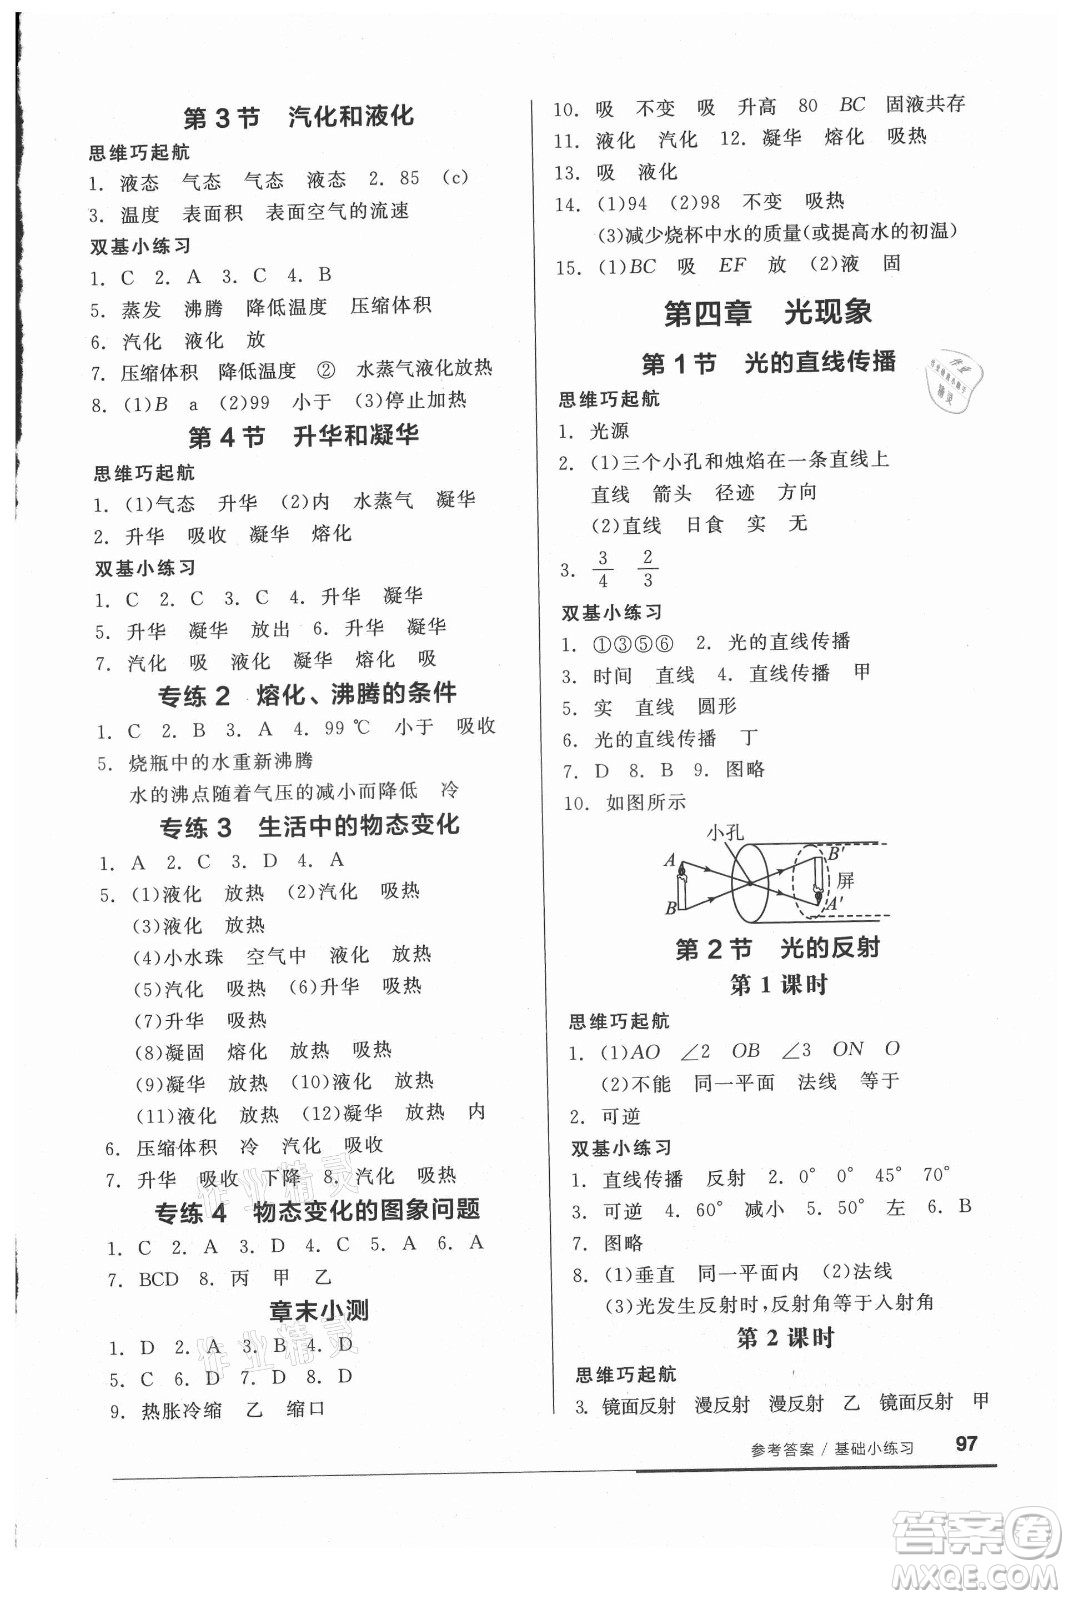 第3节 汽化和液化
思维巧起航
1. 液态 气态 气态 液态 2. 85 (c)
3. 温度 表面积 表面空气的流速
双基小练习
1. C 2. A 3. C 4. B
5. 蒸发 沸腾 降低温度 压缩体积
6. 汽化 液化 放
7. 压缩体积 降低温度 ② 水蒸气液化放热
8. (1)B a (2)99 小于 (3)停止加热
第4节 升华和凝华
思维巧起航
1. (1)气态 升华 (2)内 水蒸气 凝华
2. 升华 吸收 凝华 熔化
双基小练习
1. C 2. C 3. C 4. 升华 凝华
5. 升华 凝华 放出 6. 升华 凝华
7. 汽化 吸 液化 凝华 熔化 吸
专练2 熔化、沸腾的条件
1. C 2. B 3. A 4. 99 ℃ 小于 吸收
5. 烧瓶中的水重新沸腾
水的沸点随着气压的减小而降低 冷
专练3 生活中的物态变化
1. A 2. C 3. D 4. A
5. (1)液化 放热 (2)汽化 吸热
(3)液化 放热
(4)小水珠 空气中 液化 放热
(5)汽化 吸热 (6)升华 吸热
(7)升华 吸热
(8)凝固 熔化 放热 吸热
(9)凝华 放热 (10)液化 放热
(11)液化 放热 (12)凝华 放热 内
6. 压缩体积 冷 汽化 吸收
7. 升华 吸收 下降 8. 汽化 吸热
专练4 物态变化的图象问题
1. C 2. A 3. D 4. C 5. A 6. A
7. BCD 8. 丙 甲 乙
章末小测
1. D 2. A 3. B 4. D
5. C 6. D 7. B 8. D
9. 热胀冷缩 乙 缩口
10. 吸 不变 吸 升高 80 BC 固液共存
11. 液化 汽化 12. 凝华 熔化 吸热
13. 吸 液化
14. (1)94 (2)98 不变 吸热
(3)减少烧杯中水的质量(或提高水的初温)
15. (1)BC 吸 EF 放 (2)液 固
第四章 光现象
第1节 光的直线传播
思维巧起航
1. 光源
2. (1)三个小孔和烛焰在一条直线上
直线 箭头 径迹 方向
(2)直线 日食 实 无
3. 3/4 2/3
双基小练习
1. ①③⑤⑥ 2. 光的直线传播
3. 时间 直线 4. 直线传播 甲
5. 实 直线 圆形
6. 光的直线传播 丁
7. D 8. B 9. 图略
10. 如图所示
小孔
A B' 屏
B A'
第2节 光的反射
第1课时
思维巧起航
1. (1)AO ∠2 OB ∠3 ON O
(2)不能 同一平面 法线 等于
2. 可逆
双基小练习
1. 直线传播 反射 2. 0° 0° 45° 70°
3. 可逆 4. 60° 减小 5. 50° 左 6. B
7. 图略
8. (1)垂直 同一平面内 (2)法线
(3)光发生反射时,反射角等于入射角
第2课时
思维巧起航
3. 镜面反射 漫反射 漫反射 乙 镜面反射 甲
参考答案 / 基础小练习 97
作业精灵
作业精灵
答案卷
MXQE.COM